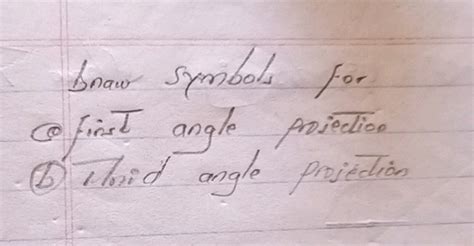 Draw symbols for
(a) First angle projection
(b) Third angle projection